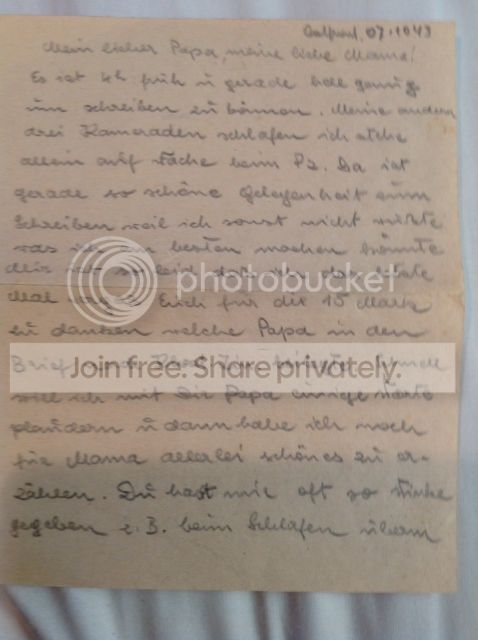 Ostfront, 07.1943
Mein lieber Papa, meine liebe Mama!
Es ist 4h früh u gerade hell genug
um schreiben zu können. Meine andern
drei Kameraden schlafen ich stehe
allein auf Wache beim Pz. Da ist
gerade so schöne Gelegenheit zum
Schreiben weil ich sonst nicht wüßte
was ich am besten machen könnte
Mir tut so leid daß ich das letzte
Mal Euch für die 15 Mark
photobucket
zu danken welche Papa in den
Brief
Join free. Share privately.
will ich mit Dir Papa einige Worte
plaudern u dann habe ich noch
für Mama allerlei schönes zu er-
zählen. Du hast mir oft so Winke
gegeben z. B. beim Schlafen überm